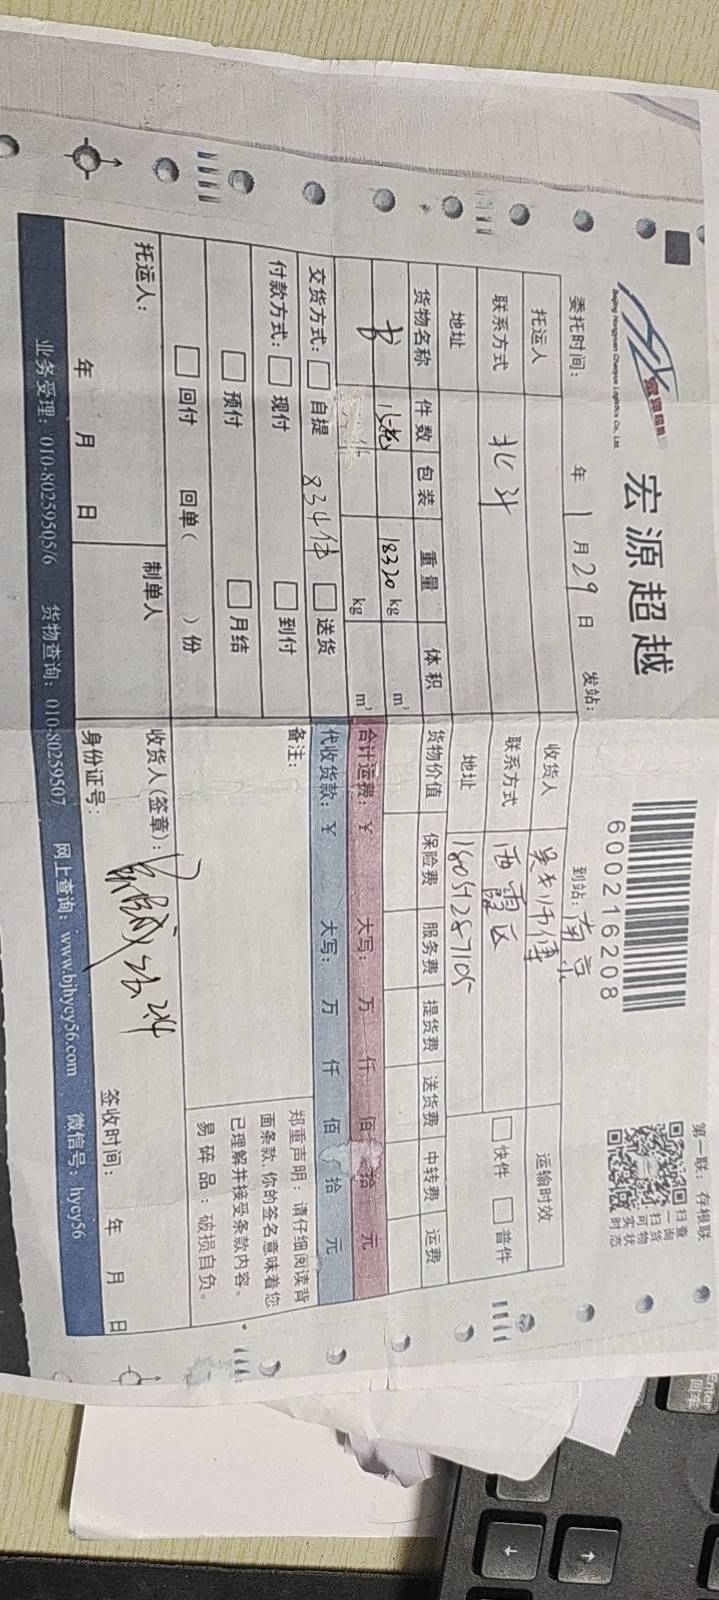 宏源超越
Beijing Hongyuan Chaoyue Logistics Co., Ltd.
600216208
第一联：存根联
扫一扫
查询货物
可实时状态
委托时间： 年 1 月 29 日 发站： 到站：南京
托运人 收货人 吴师傅 运输时效
联系方式 北斗 联系方式 西霞区 快件 普件
地址 地址 18051287105
货物名称 件数 包装 重量 体积 货物价值 保险费 服务费 提货费 送货费 中转费 运费
书 18320 kg m³
kg m³ 合计运费：￥ 大写： 万 仟 佰 拾 元
交货方式： 自提 834件 送货 代收货款：￥ 大写： 万 仟 佰 拾 元
付款方式： 现付 到付 备注：
预付 月结
回付 回单（ ）份
郑重声明：请仔细阅读背
面条款，你的签名意味着您
已理解并接受条款内容。
易碎品：破损自负。
托运人： 制单人 收货人（签章）： 签收时间：
年 月 日 身份证号： 年 月 日
业务受理：010-80259505/6 货物查询：010-80259507 网上查询：www.bjhycy56.com 微信号：hycy56
Enter
回车